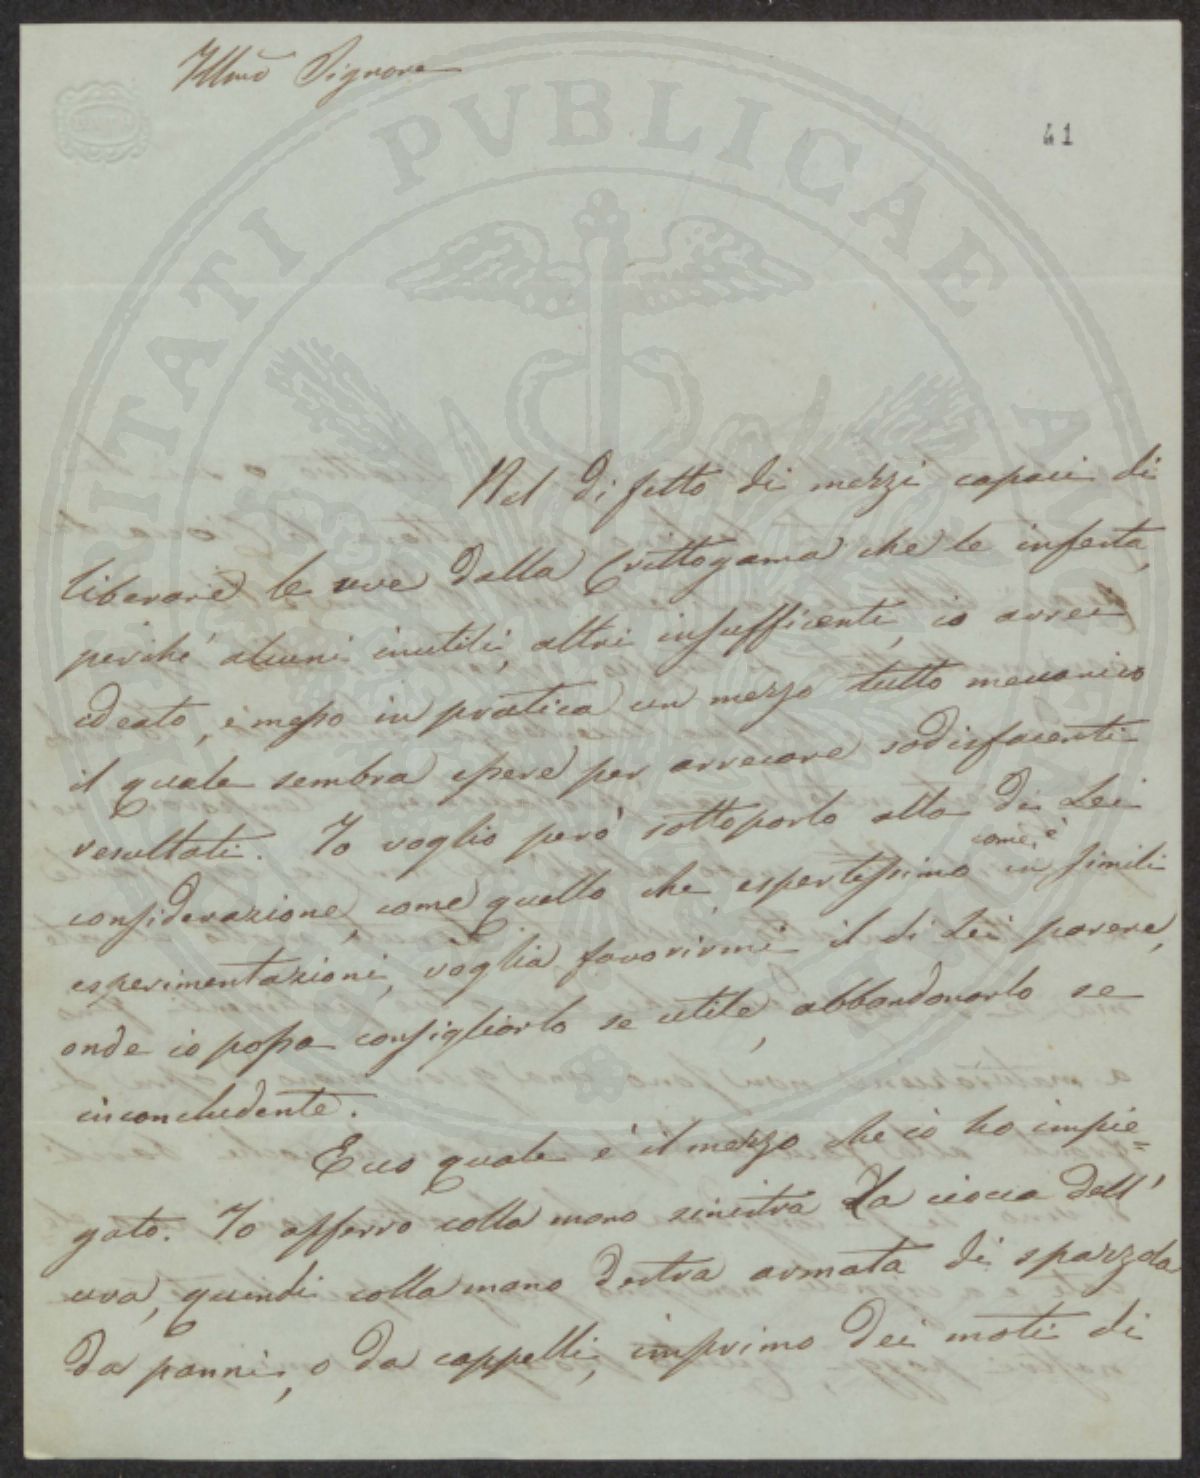 Illmo Signore
41
Nel difetto di mezzi capaci di
liberare le uve dalla Crittogama che le infesta,
perché alcuni inutili, altri insufficienti, io avrei
ideato, e messo in pratica un mezzo tutto meccanico
il quale sembra essere per arrecare sodisfacenti
resultati. Io voglio però sottoporlo alla di Lei
considerazione, come quello che espertissimo come è in simili
esperimentazioni, voglia favorirmi il di Lei parere,
onde io possa consigliarlo se utile, abbandonarlo se
inconcludente.
Ecco quale è il mezzo che io ho impie=
gato. Io afferro colla mano sinistra la ciocca dell'
uva, quindi colla mano destra armata di spazzola
da panni, o da cappelli, imprimo dei moti di